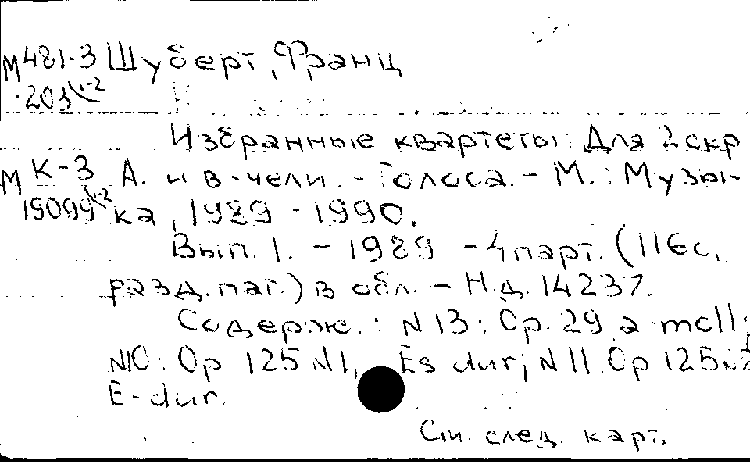 М 481-3 Шуберт, Франц
·201 к-2
Избранные квартеты: Для 2 скр
М К-3 А. и в-чели. - Голоса. - М.: Музы-
15099 к-2 ка, 1989 - 1990.
Вып. 1. - 1989 - 4 парт. (116 с.
разд. паг.) в обл. - Н.д. 14237.
Содерж.: N 13: Op. 29 a moll;
N10: Op 125 N1, Es dur; N 11 Op 125
E-dur.
См. след. карт.